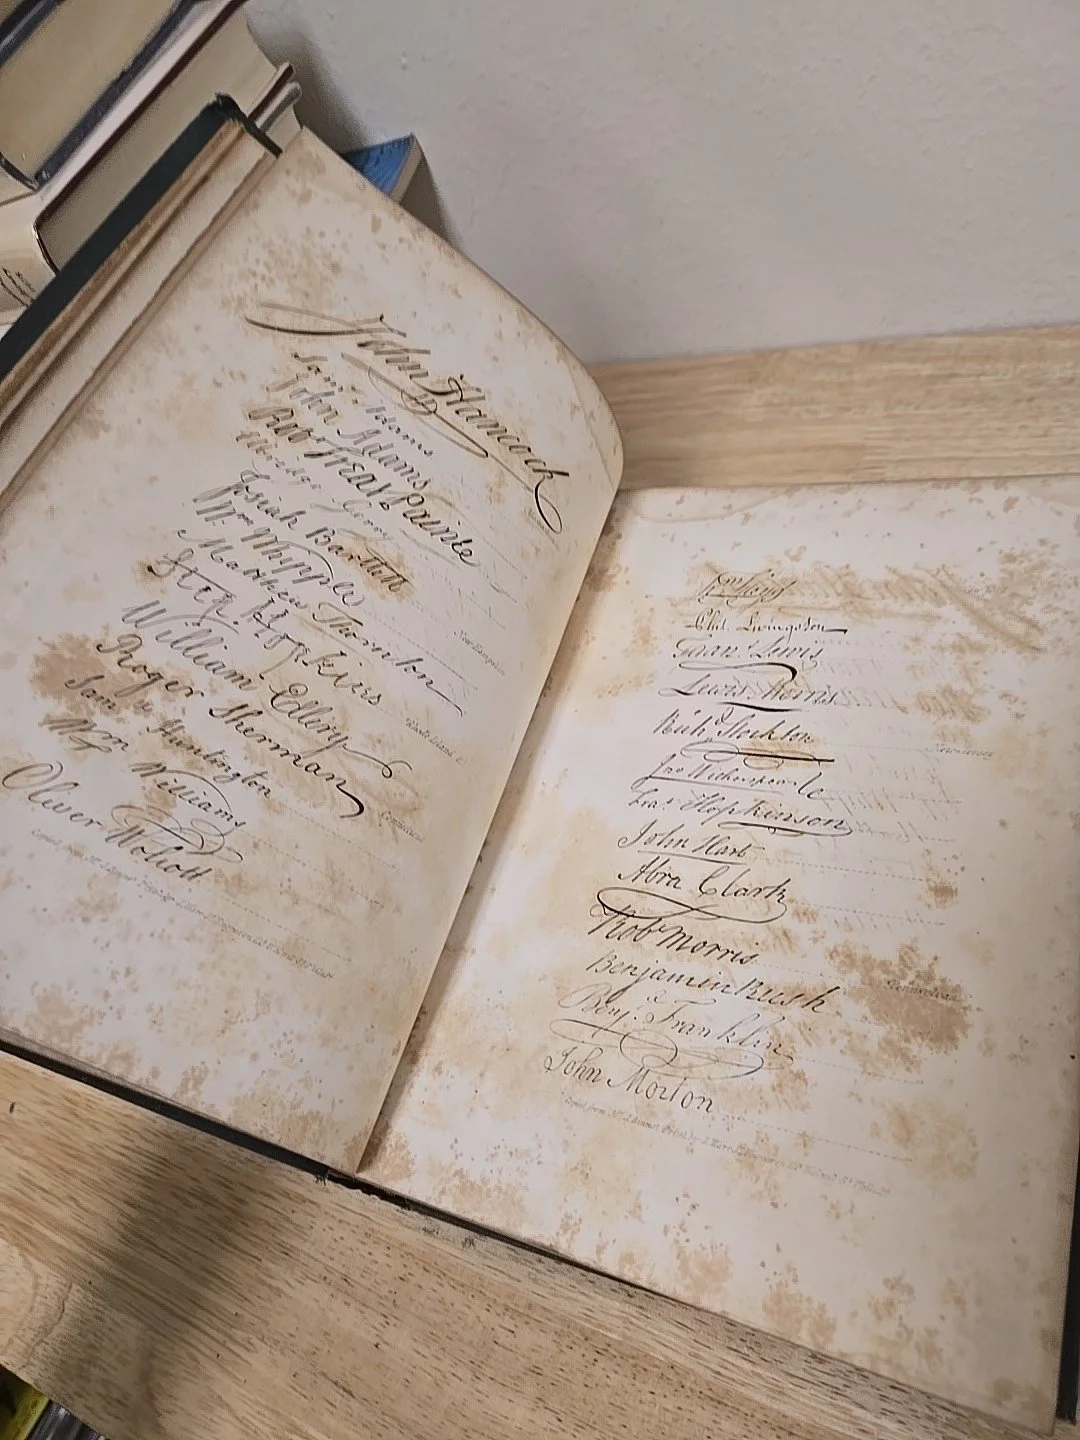 John Hancock
Saml. Adams
John Adams
Robt Treat Paine
Elbridge Gerry
Josiah Bartlett
Wm Whipple
Matthew Thornton
New Hampshire
Step. Hopkins
William Ellery
Rhode Island &c
Roger Sherman
Saml Huntington
Wm Williams
Oliver Wolcott
Connecticut
Wm Floyd
Phil. Livingston
Frans. Lewis
Lewis Morris
Richd. Stockton
Jno Witherspoon
Fras. Hopkinson
John Hart
Abra Clark
Robt Morris
Benjamin Rush
Benj. Franklin
John Morton